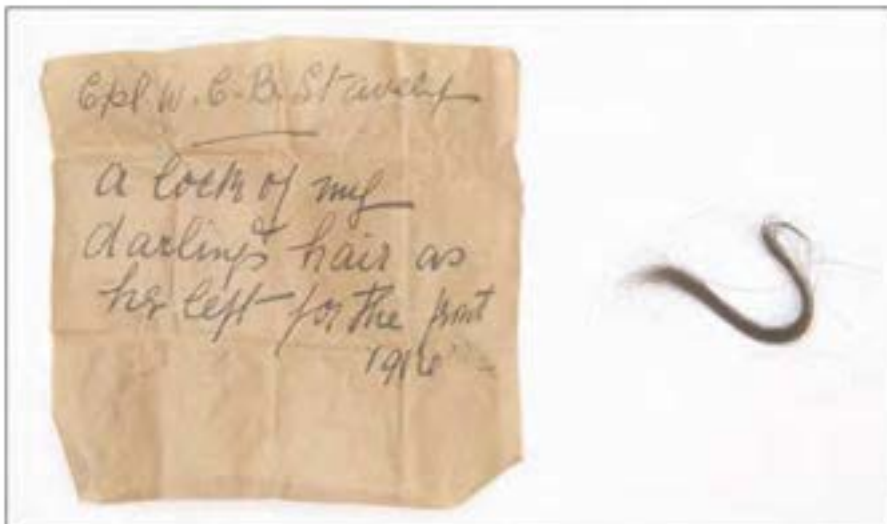 Cpl. W. C. B. Stavely
a lock of my
darling's hair as
he left for the front
1916